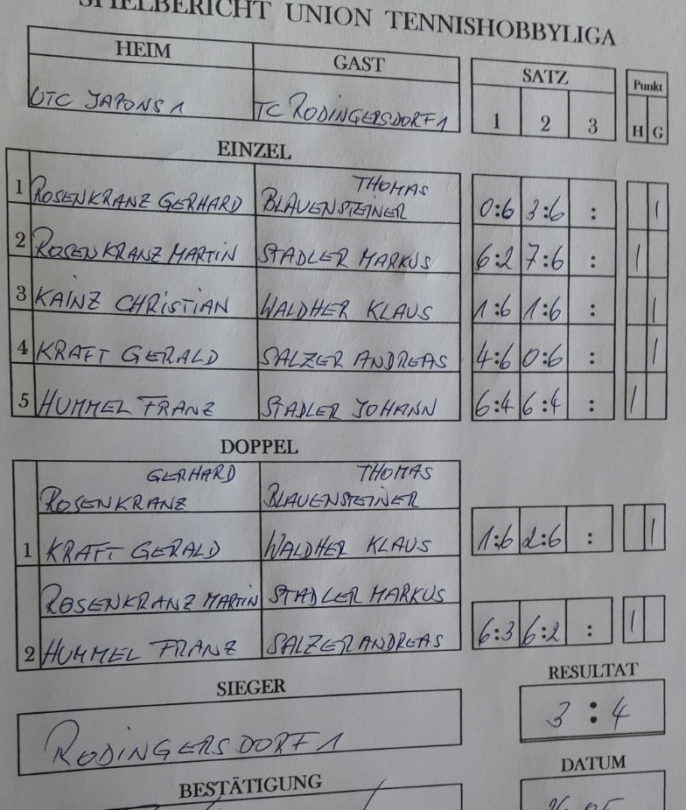 SPIELBERICHT UNION TENNISHOBBYLIGA
HEIM GAST SATZ Punkt
UTC JAPONS 1 TC RODINGERSDORF 1 1 2 3 H G
EINZEL
THOMAS
1 ROSENKRANZ GERHARD BLAUENSTEINER 0:6 3:6 : 1
2 ROSENKRANZ MARTIN STADLER MARKUS 6:2 7:6 : 1
3 KAINZ CHRISTIAN WALDHER KLAUS 1:6 1:6 : 1
4 KRAFT GERALD SALZER ANDREAS 4:6 0:6 : 1
5 HUMMEL FRANZ STADLER JOHANN 6:4 6:4 : 1
DOPPEL
GERHARD THOMAS
ROSENKRANZ BLAUENSTEINER
1 KRAFT GERALD WALDHER KLAUS 1:6 2:6 : 1
ROSENKRANZ MARTIN STADLER MARKUS
2 HUMMEL FRANZ SALZER ANDREAS 6:3 6:2 : 1
SIEGER RESULTAT
RODINGERSDORF 1 3:4
BESTÄTIGUNG DATUM